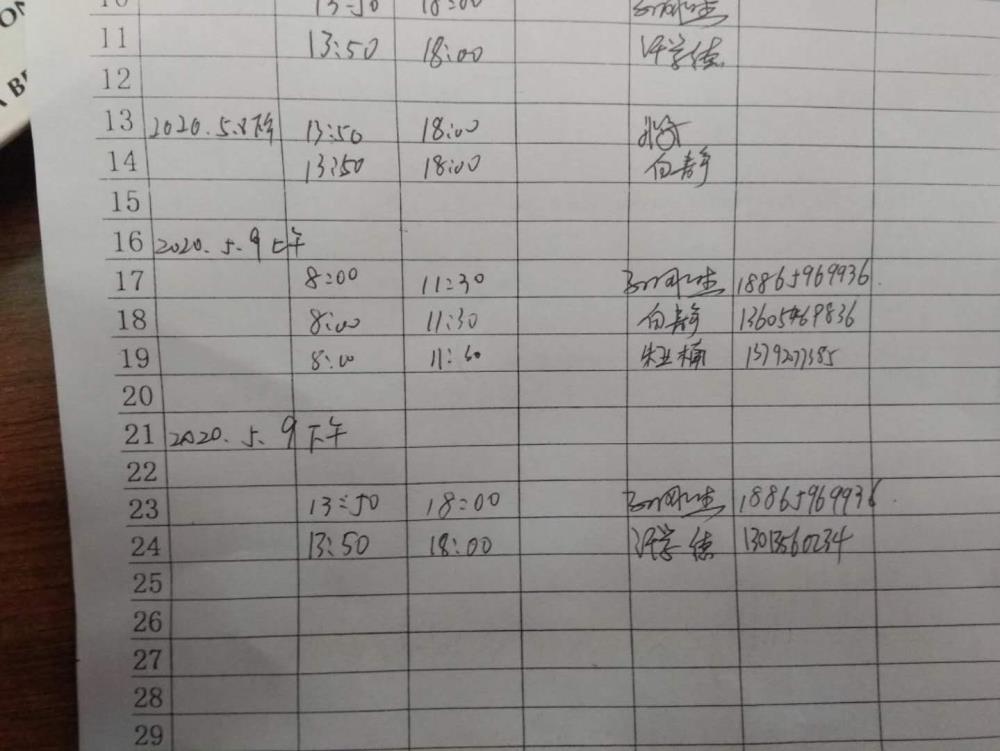 13:50 18:00
11 13:50 18:00 许学德
12
13 2020.5.8下午 13:50 18:00
14 13:50 18:00 白静
15
16 2020.5.9上午
17 8:00 11:30 18865969936
18 8:00 11:30 白静 13605469836
19 8:00 11:30
20
21 2020.5.9下午
22
23 13:50 18:00 18865969936
24 13:50 18:00 许学德
25
26
27
28
29